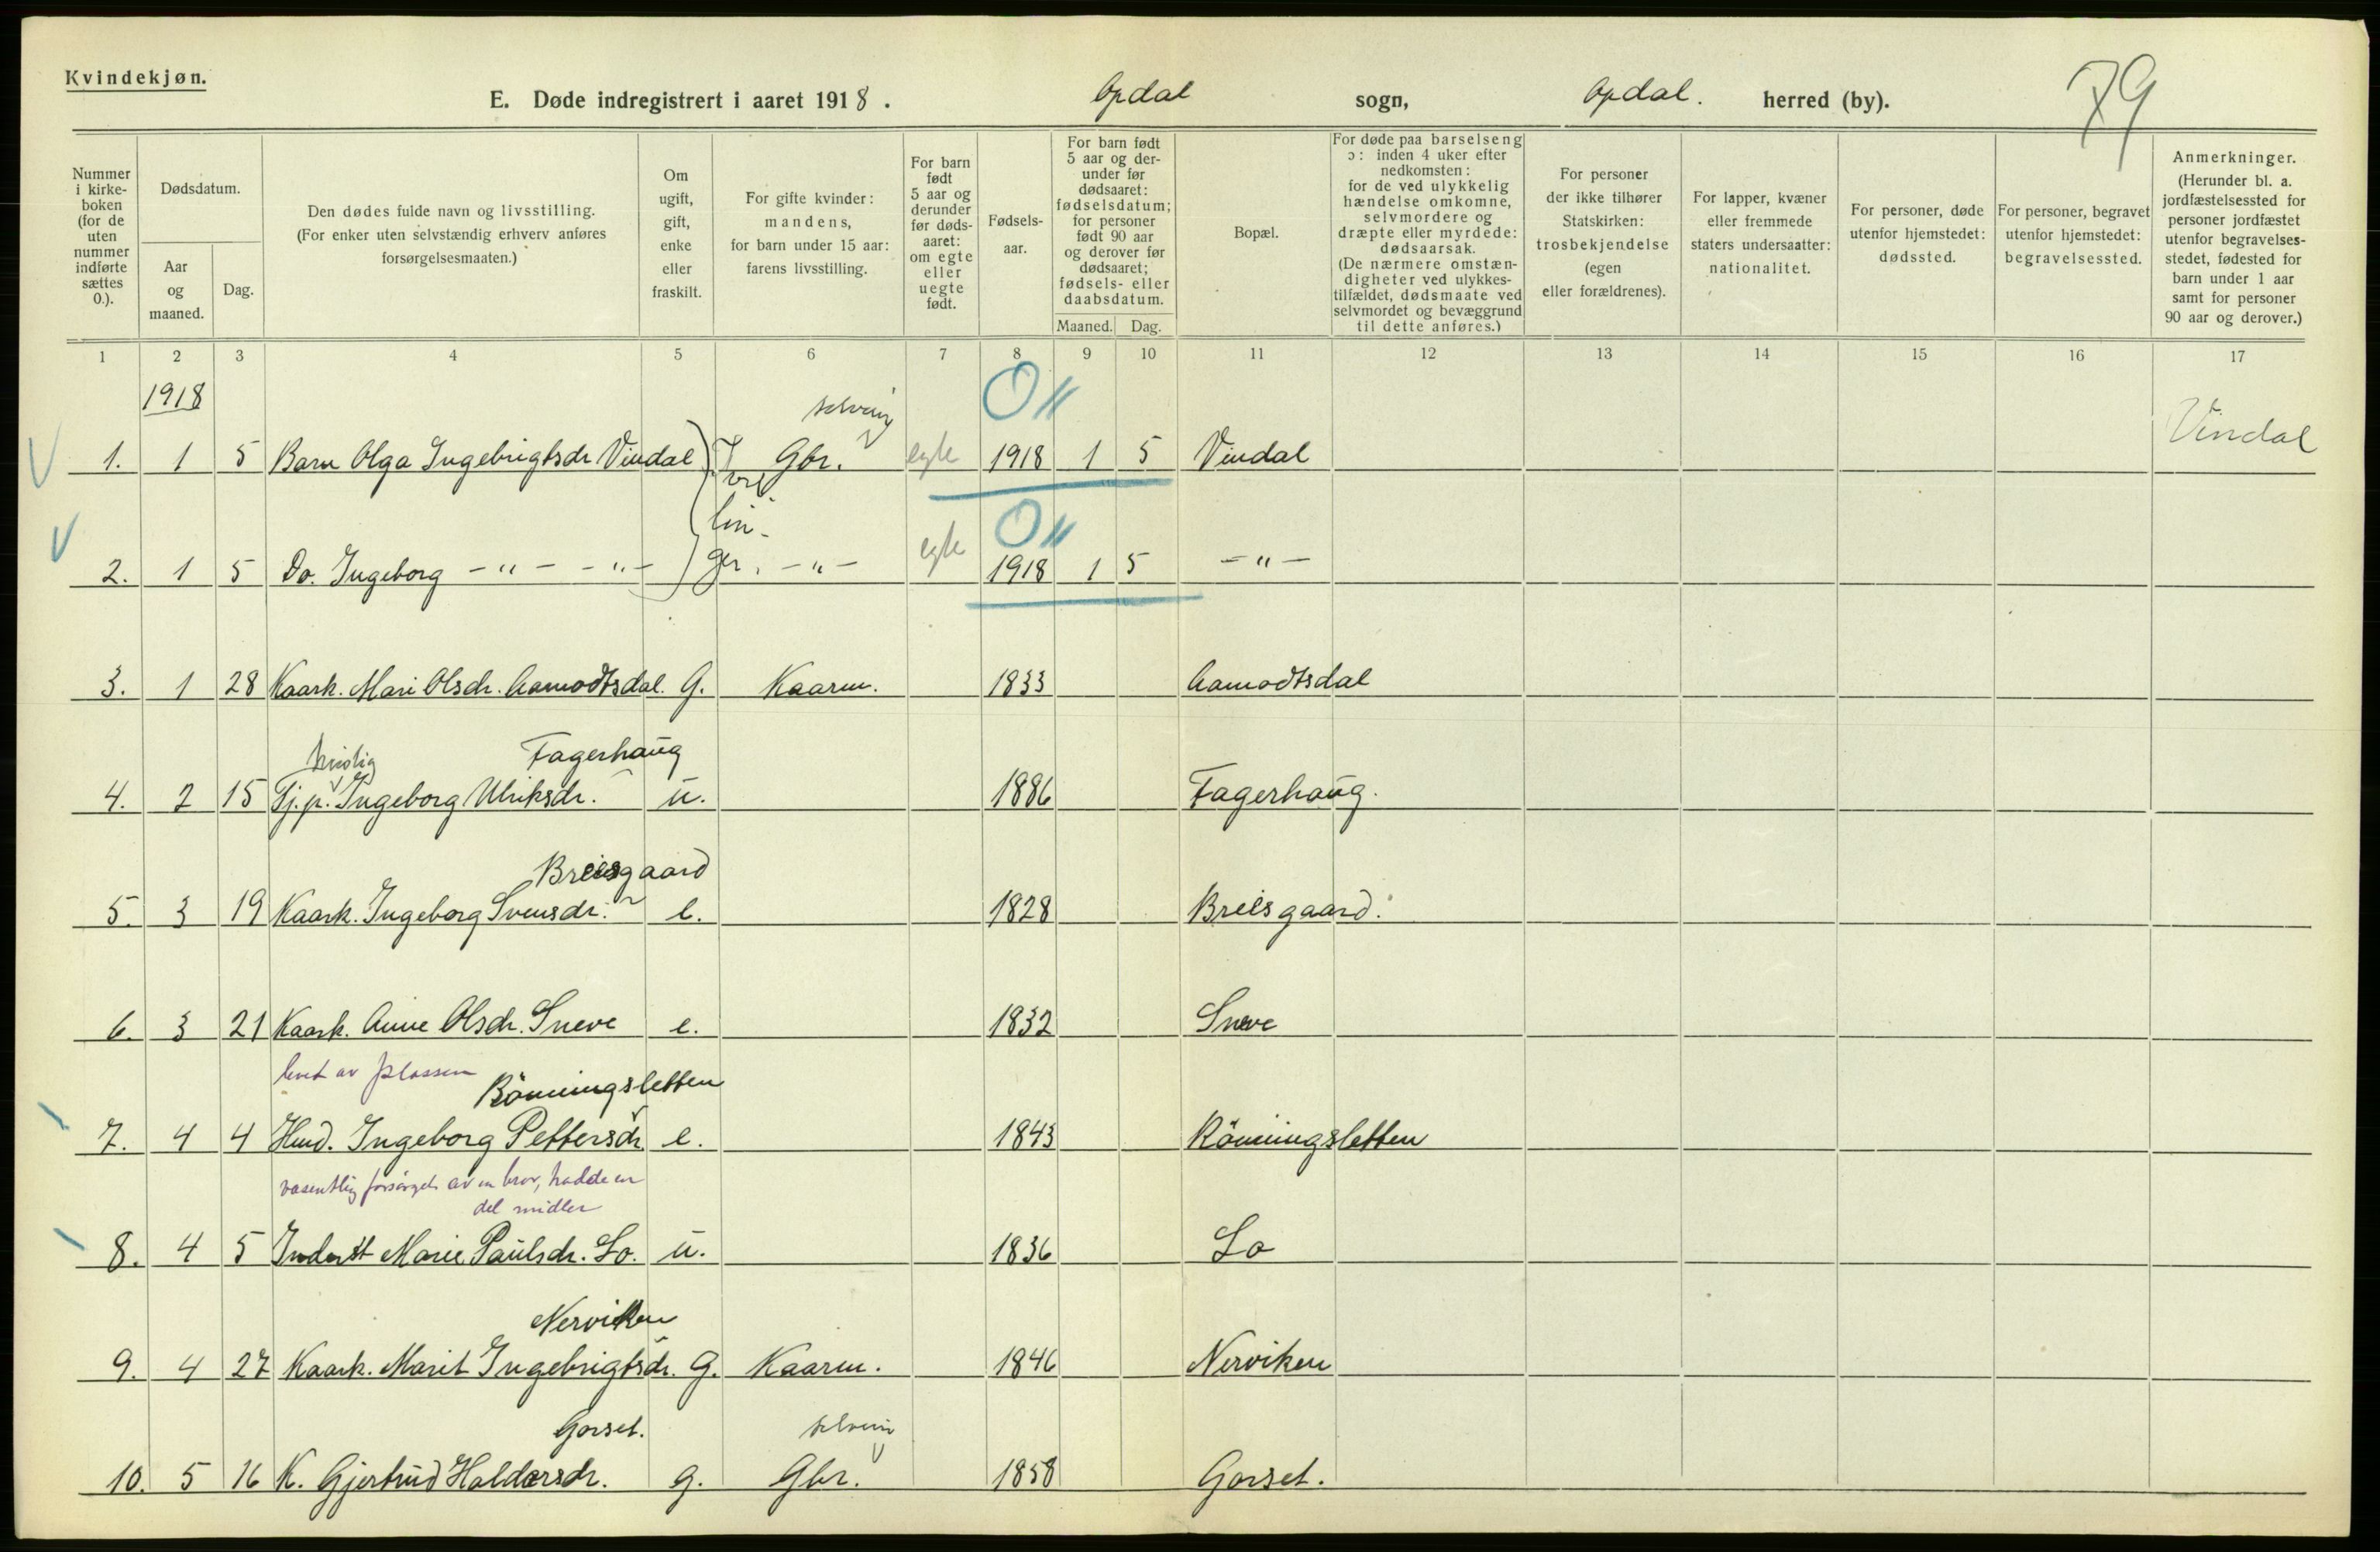 Kvindekjøn.
E. Døde indregistrert i aaret 1918. Opdal sogn, Opdal. herred (by).
79
Nummer i kirke-boken (for de uten nummer indførte sættes 0.).
Dødsdatum.
Aar og maaned.
Dag.
Den dødes fulde navn og livsstilling. (For enker uten selvstændig erhverv anføres forsørgelsesmaaten.)
Om ugift, gift, enke eller fraskilt.
For gifte kvinder: mandens, for barn under 15 aar: farens livsstilling.
For barn født 5 aar og derunder før døds-aaret: om egte eller uegte født.
Fødsels-aar.
For barn født 5 aar og der-under før dødsaaret: fødselsdatum; for personer født 90 aar og derover før dødsaaret; fødsels- eller daabsdatum.
Maaned. Dag.
Bopæl.
For døde paa barselseng ɔ: inden 4 uker efter nedkomsten: for de ved ulykkelig hændelse omkomne, selvmordere og dræpte eller myrdede: dødsaarsak. (De nærmere omstæn-digheter ved ulykkes-tilfældet, dødsmaate ved selvmordet og bevæggrund til dette anføres.)
For personer der ikke tilhører Statskirken: trosbekjendelse (egen eller forældrenes).
For lapper, kvæner eller fremmede staters undersaatter: nationalitet.
For personer, døde utenfor hjemstedet: dødssted.
For personer, begravet utenfor hjemstedet: begravelsessted.
Anmerkninger. (Herunder bl. a. jordfæstelsessted for personer jordfæstet utenfor begravelses-stedet, fødested for barn under 1 aar samt for personer 90 aar og derover.)
1 2 3 4 5 6 7 8 9 10 11 12 13 14 15 16 17
1918
selveier
1. 1 5 Barn Olga Ingebrigtsdr Vindal Tvil Gbr. egte 1918 1 5 Vindal Vindal
lin-
2. 1 5 Do. Ingeborg -"- -"- ger. -"- egte 1918 1 5 -"-
3. 1 28 Kaark. Mari Olsdr. Aamodtsdal. G. Kaarm. 1833 Aamodtsdal
huslig Fagerhaug
4. 2 15 Tj.p. Ingeborg Ulriksdr. u. 1886 Fagerhaug.
Breesgaard
5. 3 19 Kaark. Ingeborg Svensdr. e. 1828 Breesgaard.
6. 3 21 Kaark. Anne Olsdr. Sneve e. 1832 Sneve
levet av plassen Rönningsletten
7. 4 4 Husd. Ingeborg Pettersdr. e. 1843 Rönningsletten
væsentlig forsørget av en bror, hadde en
del midler
8. 4 5 Inderst Marie Paulsdr. Lo. u. 1836 Lo
Nerviken
9. 4 27 Kaark. Marit Ingebrigtsdr. G. Kaarm. 1846 Nerviken
Gorset. selveier
10. 5 16 K. Gjertrud Haldorsdr. g. Gbr. 1858 Gorset.